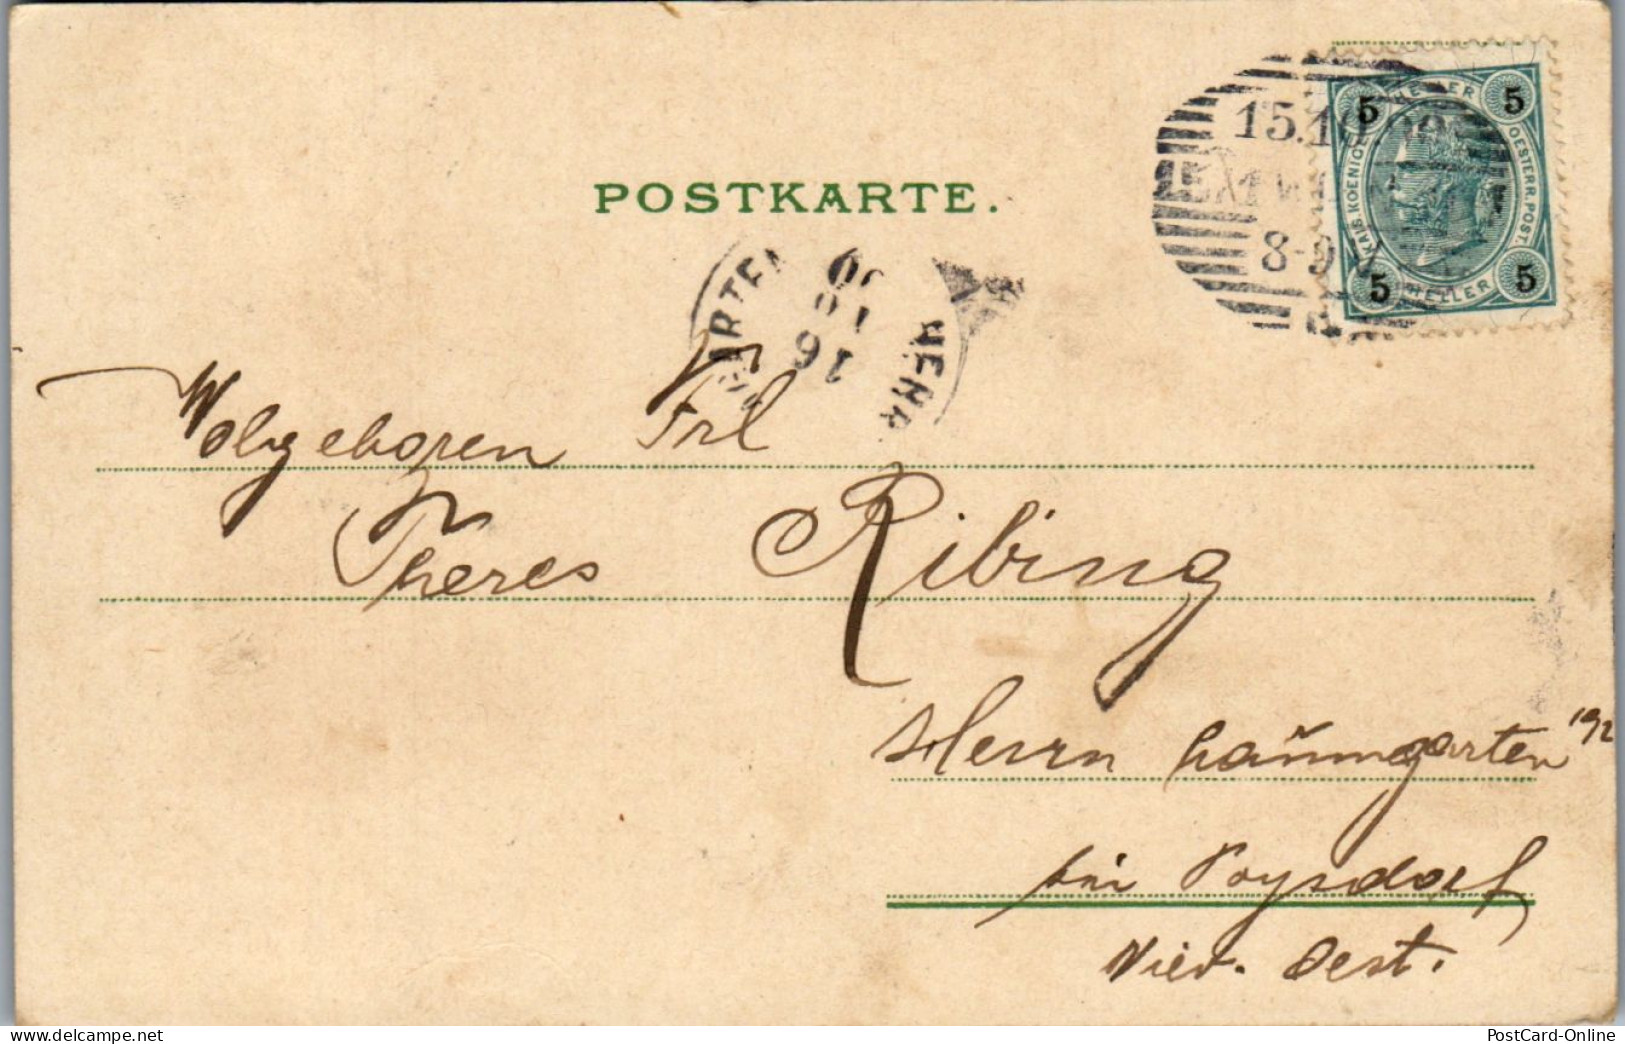 POSTKARTE.
15.10.00
8-9 V
5 HELLER 5
KAIS. KOENIGL. OESTERR. POST.
5 HELLER 5
HERR
16
10
00
Wolgeboren Frl
Theres Ribing
Herrn baŭmgarten 192
bei Poysdorf
Nied. Oest.
www.delcampe.net
PostCard-Online